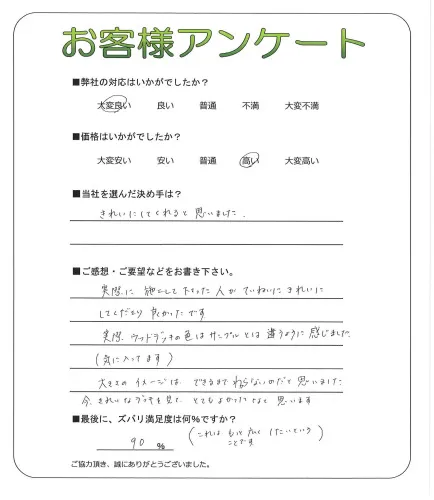 お客様アンケート
■弊社の対応はいかがでしたか？
大変良い 良い 普通 不満 大変不満
■価格はいかがでしたか？
大変安い 安い 普通 高い 大変高い
■当社を選んだ決め手は？
きれいにしてくれると思いました。
■ご感想・ご要望などをお書き下さい。
実際に施工して下さった人がていねいにきれいに
してくださり良かったです
実際、ウッドデッキの色はサンプルとは違うように感じました
(気に入ってます)
大きさのイメージは、できるまでわからないのだと思いました
今、きれいなデッキを見て、とてもよかったなと思います
■最後に、ズバリ満足度は何%ですか？
90 %
(これは もっと広くしたいという
ことです
ご協力頂き、誠にありがとうございました。